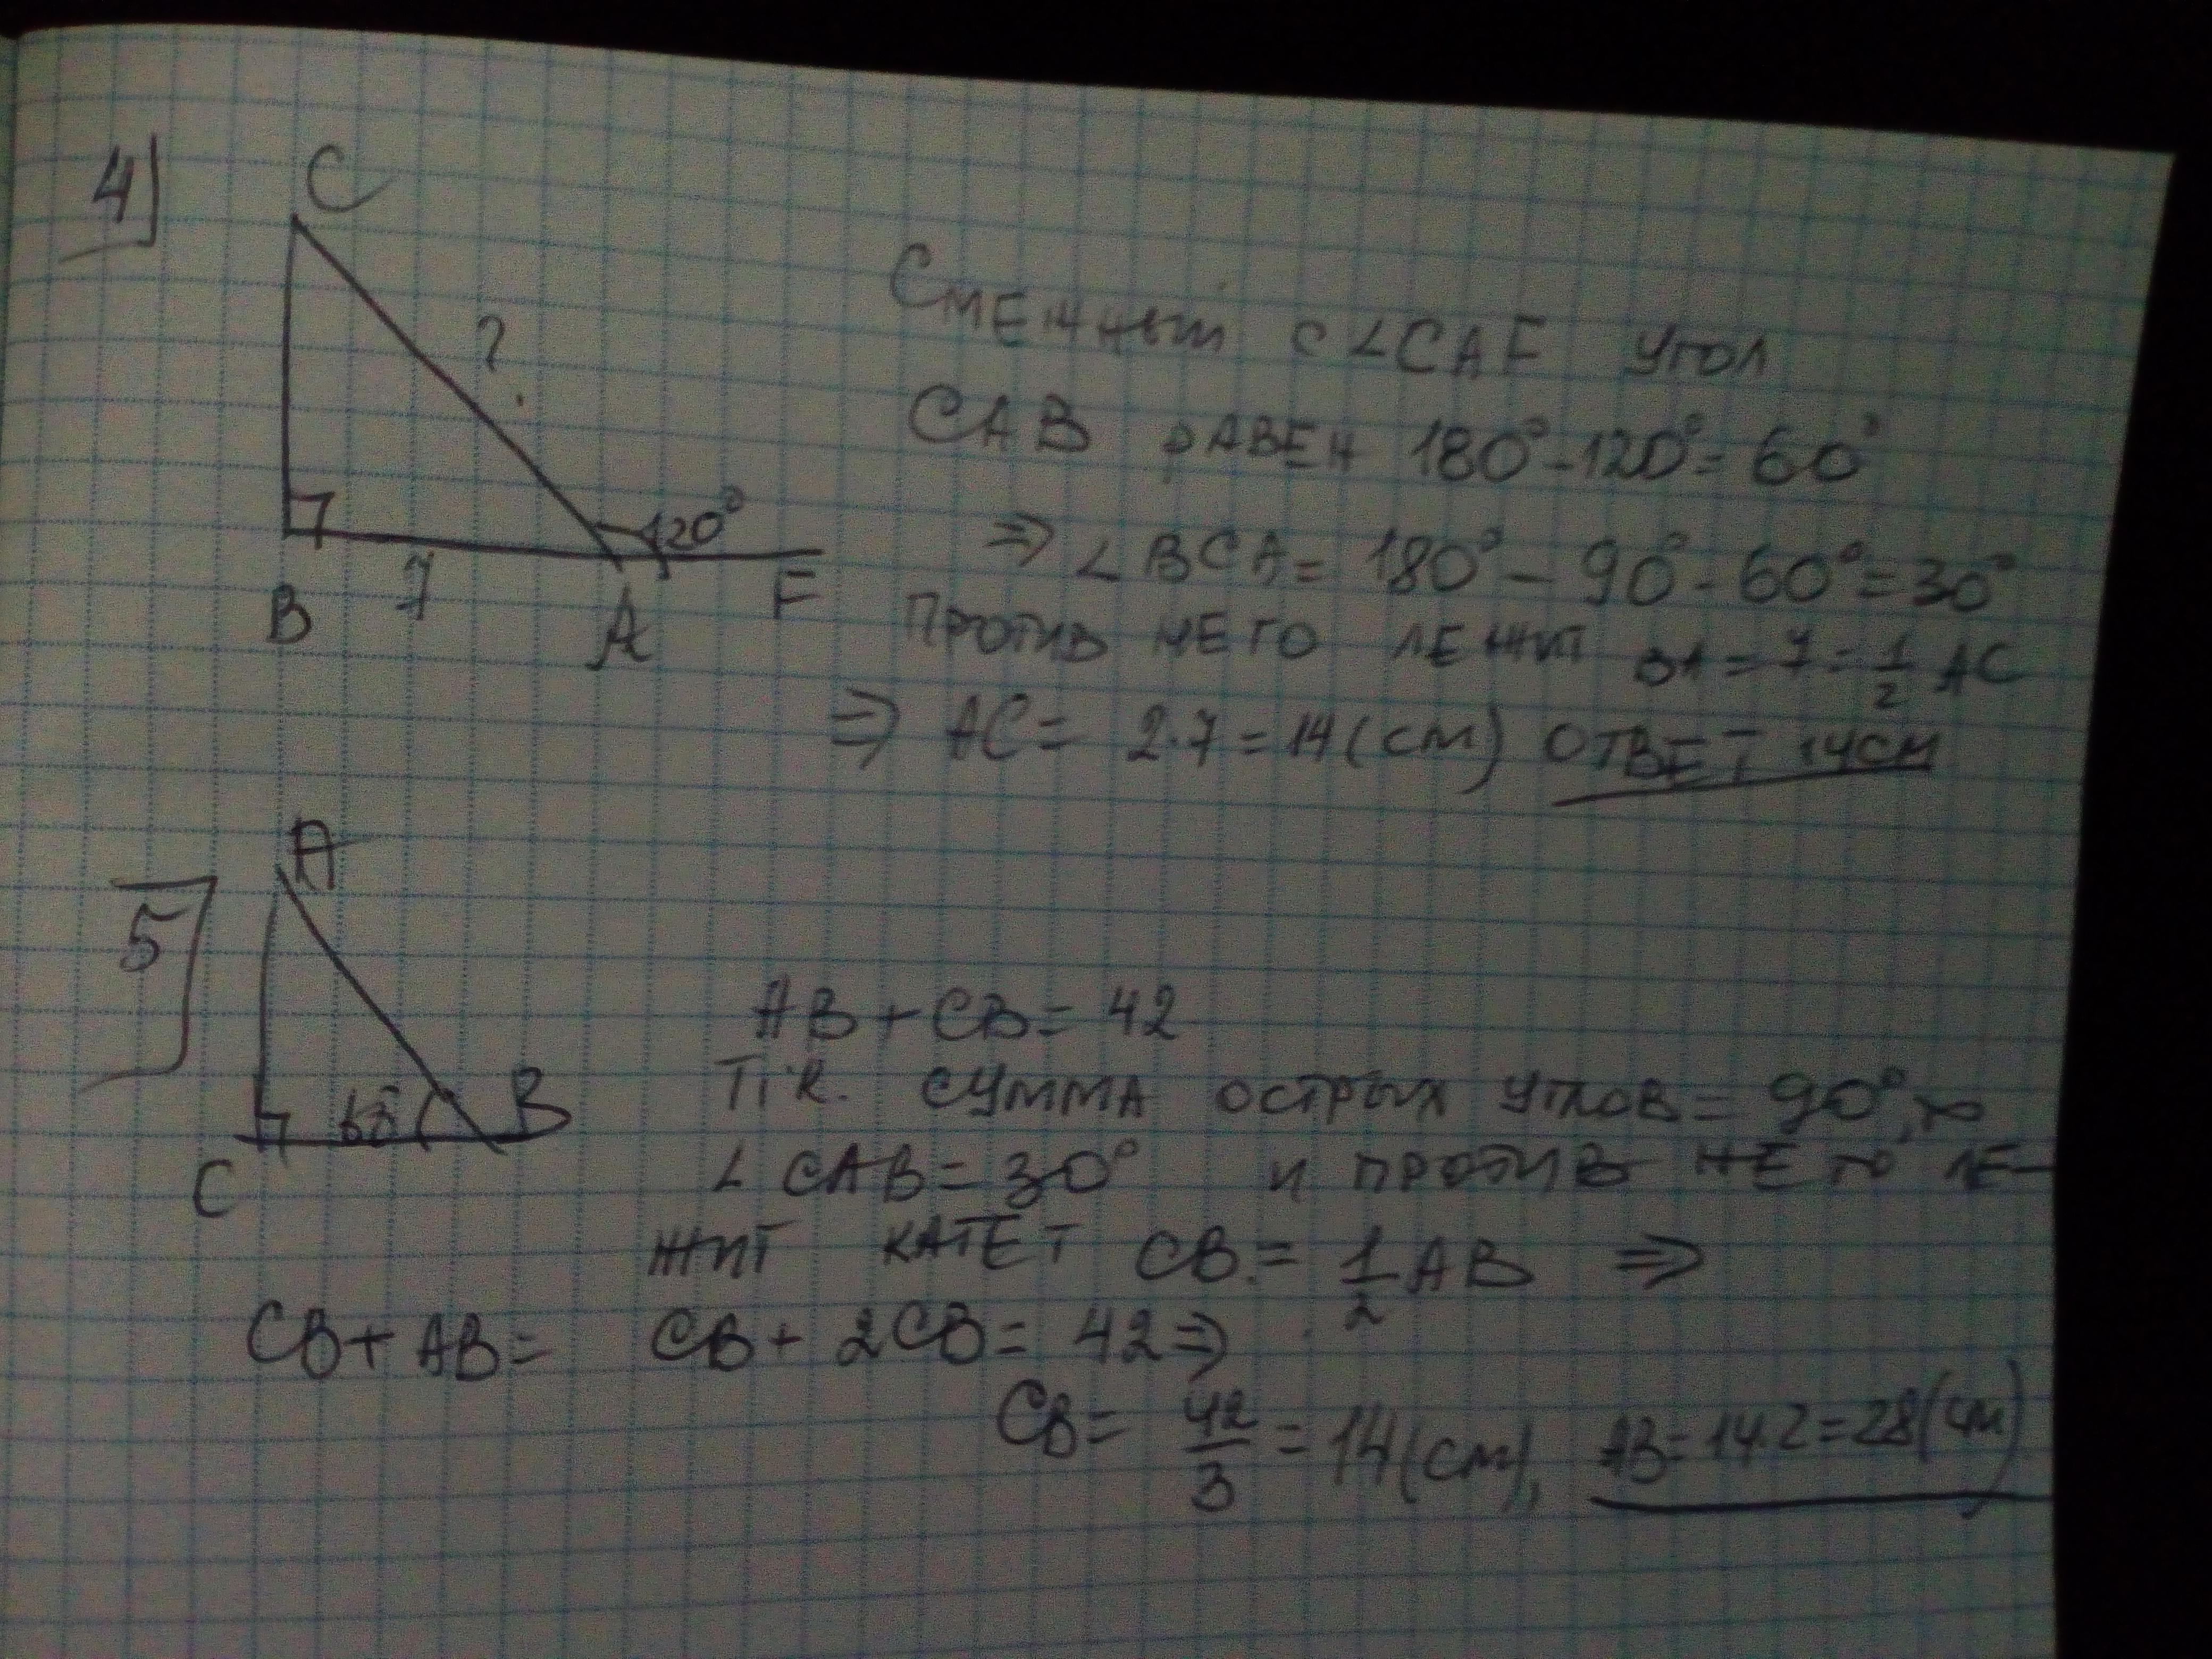 4)
C
?
120°
B 7 A F
Смежный с ∠CAF угол
CAB равен 180° - 120° = 60°
⇒ ∠BCA = 180° - 90° - 60° = 30°
против него лежит BA = 7 = 1/2 AC
⇒ AC = 2·7 = 14 (см) ответ 14 см
5
A
60° B
C
AB + CB = 42
Т.к. сумма острых углов = 90°, то
∠CAB = 30° и против него ле-
жит катет CB = 1/2 AB ⇒
CB + AB = CB + 2CB = 42 ⇒
CB = 42/3 = 14 (см), AB = 14·2 = 28 (см)